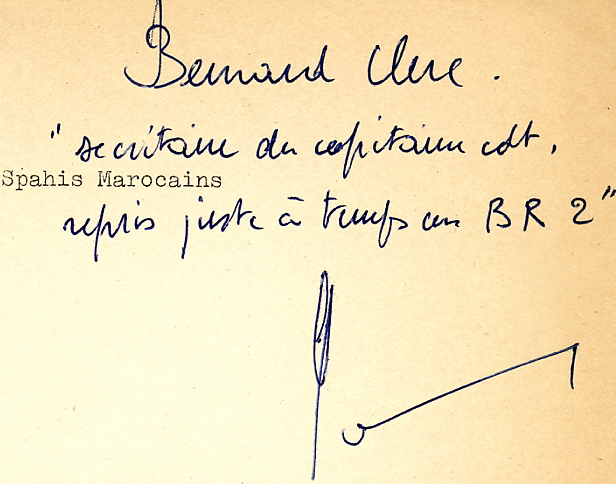 Bernard Clerc.
" secrétaire du capitaine cdt,
Spahis Marocains
repris juste à temps au BR 2 "